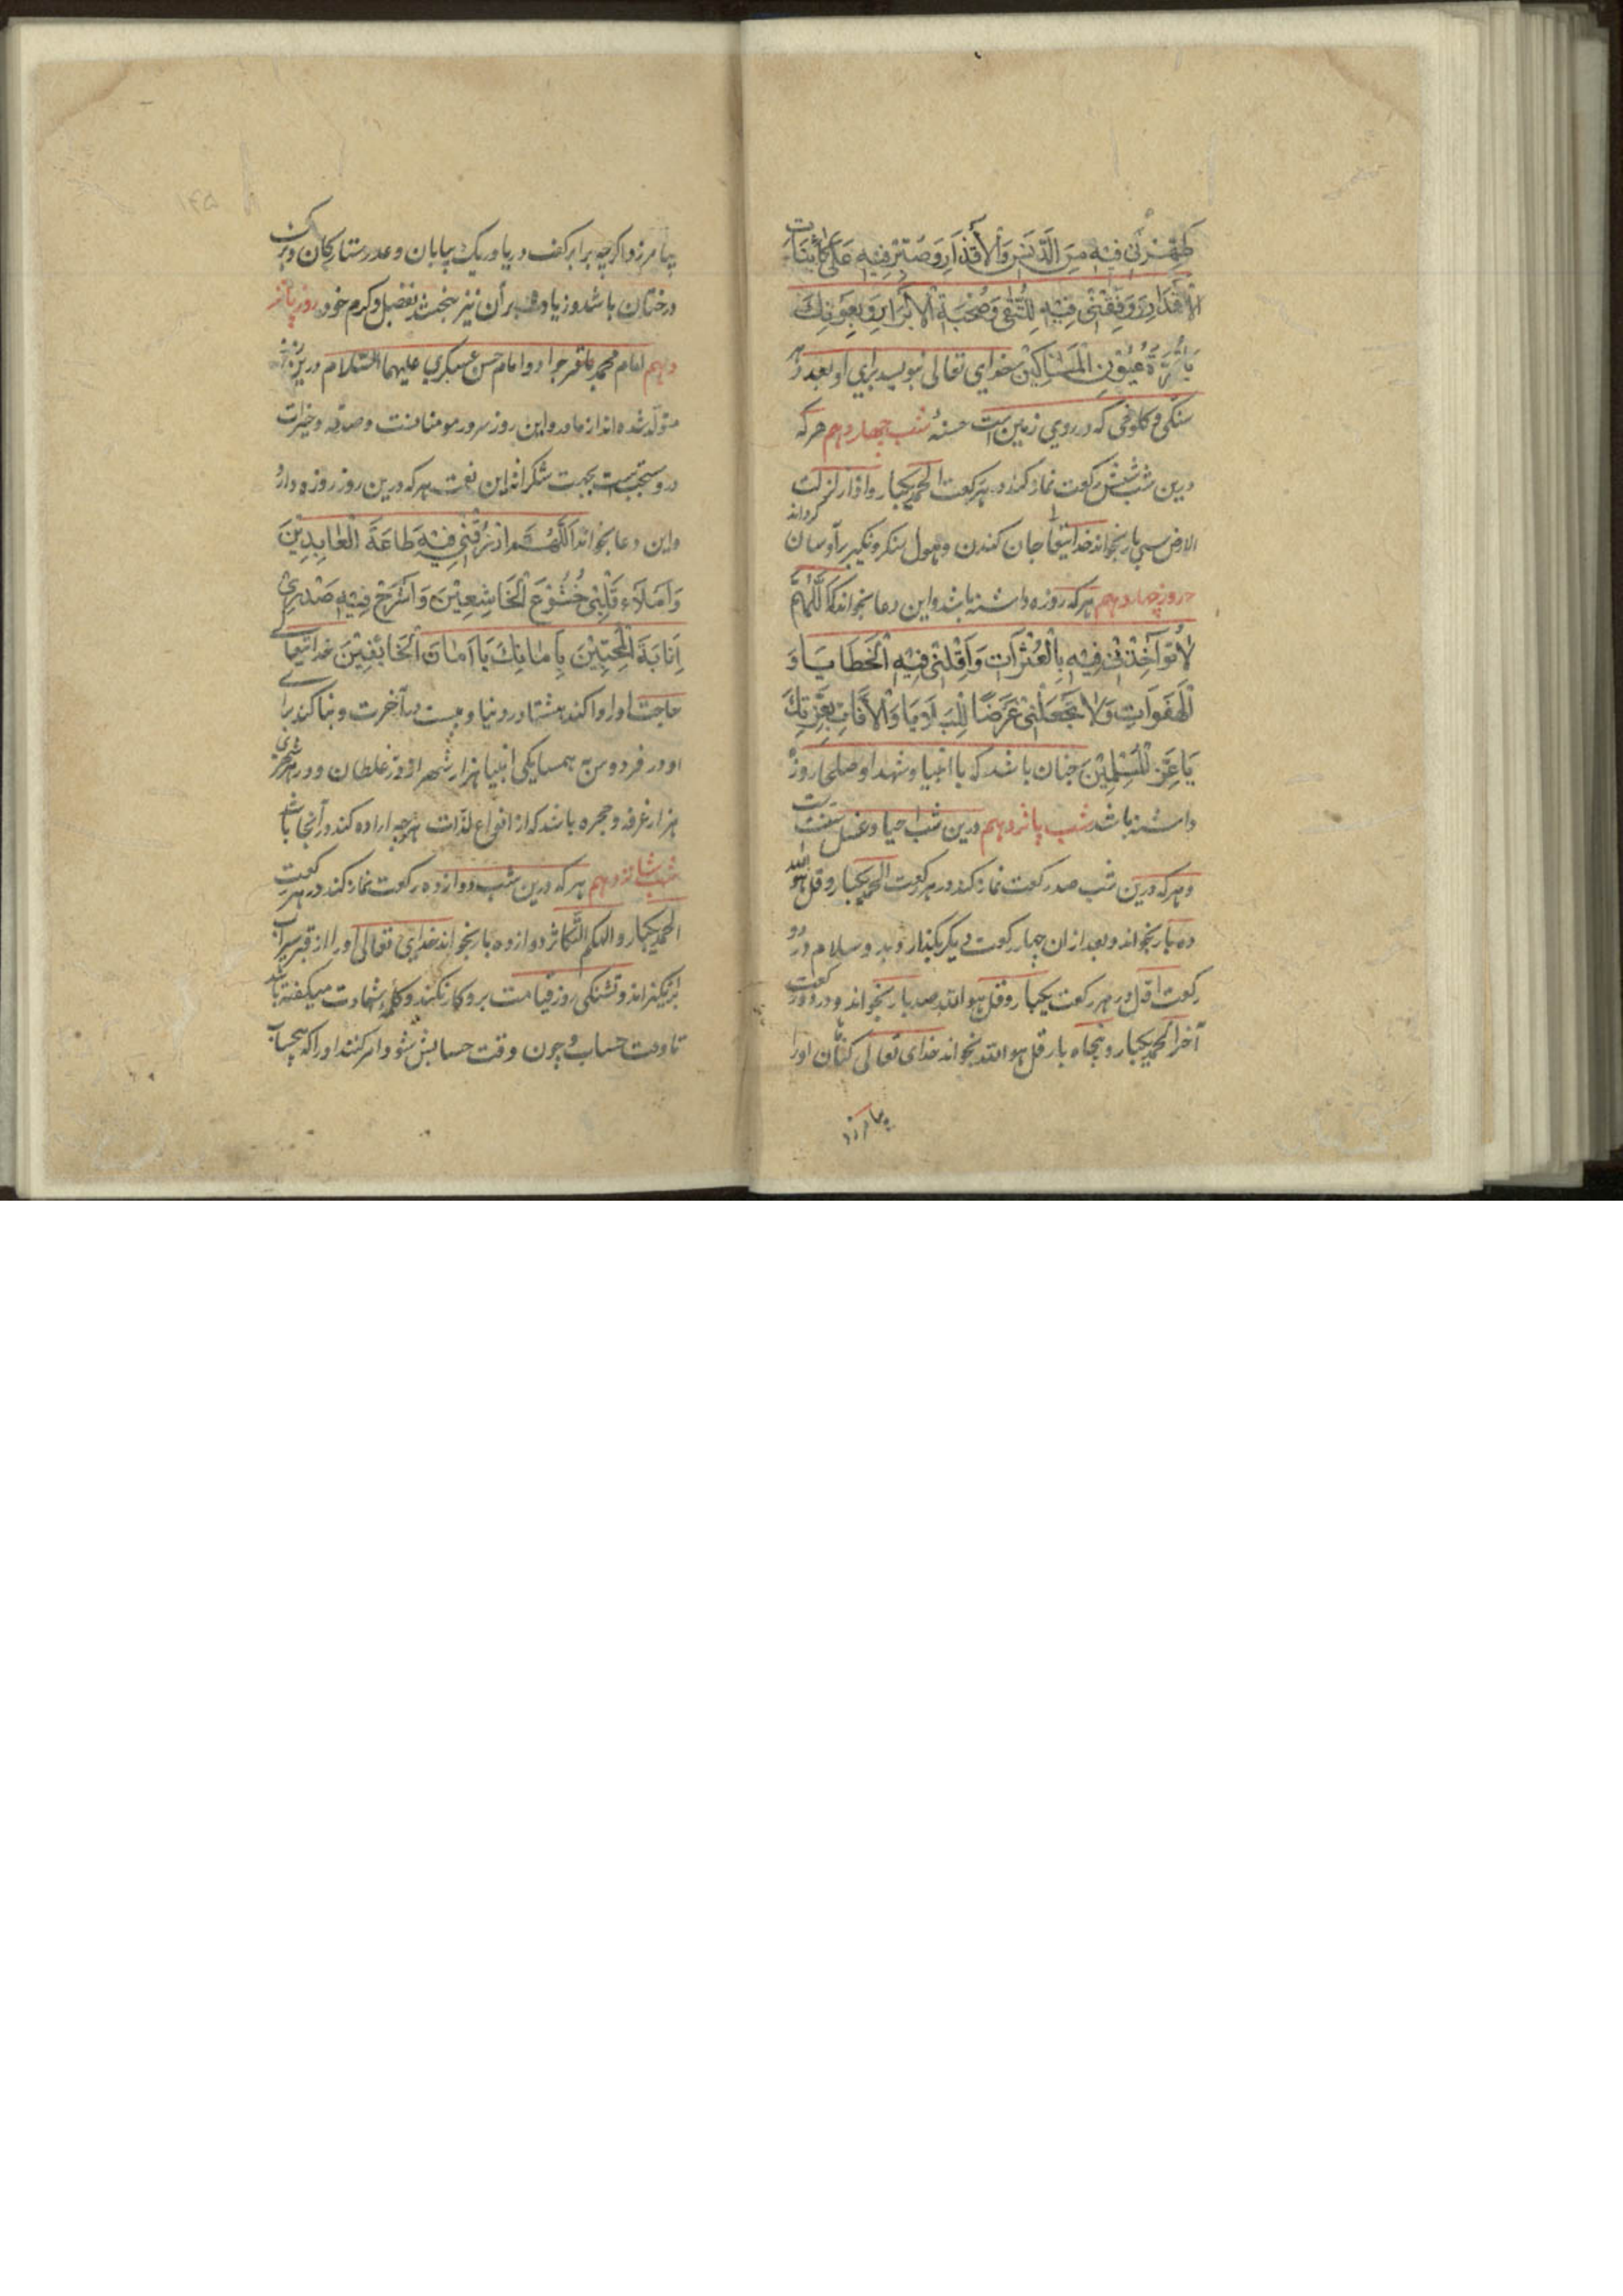 طَهِّرْنی فِیهِ مِنَ الدَّنَسِ وَالْأَقْذَارِ وَصَبِّرْنِی فِیهِ عَلَی كَائِنَاتِ
الْأَقْدَارِ وَوَفِّقْنِی فِیهِ لِلتُّقَی وَصُحْبَةِ الْأَبْرَارِ بِعَوْنِكَ
یَا قُرَّةَ عُیُونِ الْمَسَاكِینَ خدای تعالی بنویسد برای او بعدد هر
سنکی و کلوخی که در روی زمین است حسنهٔ شب چهاردهم هرکه
درین شب شش رکعت نماز کند در هر رکعت الحمد یکبار و اذا زلزلت
الارض سی بار بخواند خدایتعالی جان کندن و هول منکر و نکیر بر او آسان کرداند
روز چهاردهم هرکه روزه داشته باشد و این دعا بخواند که اَللّٰهُمَّ
لَا تُؤَاخِذْنِی فِیهِ بِالْعَثَرَاتِ وَأَقِلْنِی فِیهِ الْخَطَایَا وَ
الْهَفَوَاتِ وَلَا تَجْعَلْنِی غَرَضًا لِلْبَلَایَا وَالْآفَاتِ بِعِزَّتِكَ
یَا عِزَّ الْمُسْلِمِینَ چنان باشد که با انبیا و شهدا و صلحا روزه
داشته باشد شب پانزدهم درین شب احیا و غسل سنت است
و هرکه درین شب صد رکعت نماز کند در هر رکعت الحمد یکبار و قل هو الله
ده بار بخواند و بعد از ان چهار رکعت دیکر بکذارد بدو سلام در دو
رکعت اول در هر رکعت یکبار و قل هو الله صد بار بخواند و در دو رکعت
آخر الحمد یکبار و پنجاه بار قل هو الله بخواند خدای تعالی کناهان او را
بیامرزد
بیامرزد و اکرچه برابر کف دریا و ریک بیابان و عدد ستارکان و برک
درختان باشد و زیاده بر آن نیز ببخشد بفضل و کرم خود روز پانز
دهم امام محمد باقر جواد و امام حسن عسکری علیهما السّلام درین روز
متولّد شده‌اند از مادر و این روز سرور مومنانست و صدقه و خیرات
درو مستحب است بجهت شکرانه این نعمت هرکه درین روز روزه دارد
و این دعا بخواند اَللّٰهُمَّ ارْزُقْنِی فِیهِ طَاعَةَ الْعَابِدِینَ
وَامْلَاءْ قَلْبِی خُشُوعَ الْخَاشِعِینَ وَاشْرَحْ فِیهِ صَدْرِی
اِنَابَةَ الْمُخْبِتِینَ بِأَمَانِكَ یَا أَمَانَ الْخَائِفِینَ خدایتعالی
حاجت او روا کند هشتاد در دنیا و بیست در آخرت و بنا کند برای
او در فردوس به همسایکی انبیا هزار شهر از نور غلطان و در هر شهری
هزار غرفه و حجره باشد که از انواع لذّات هرچه اراده کند در آنجا باشد
شب شانزدهم هرکه درین شب دوازده رکعت نماز کند در هر رکعت
الحمد یکبار و الهکم التّکاثر دوازده بار بخواند خدای تعالی او را از قبر سیراب
برانکیزاند و تشنکی روز قیامت برو کار نکند و کلمه شهادت میکفته باشد
تا وقت حساب و چون وقت حسابش شود امر کنند او را که بیحساب